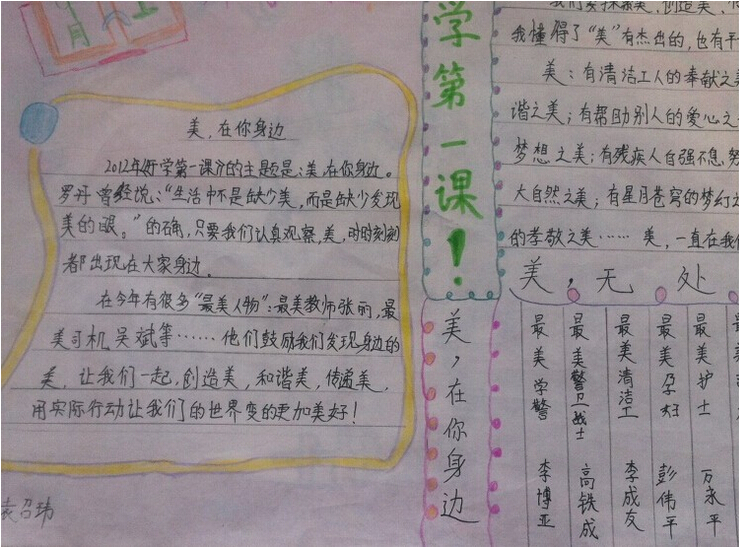 月
上
美,在你身边
2012年《开学第一课》的主题是:美在你身边。
罗丹曾经说:“生活中不是缺少美,而是缺少发现
美的眼。”的确,只要我们认真观察,美,时时刻刻
都出现在大家身边。
在今年有很多“最美人物”:最美教师张丽,最
美司机吴斌等……他们鼓励我们发现身边的
美,让我们一起,创造美,和谐美,传递美,
用实际行动让我们的世界变的更加美好!
袁召玮
学第一课!
美,在你身边
我们要探索美,创造美,
我懂得了“美”有杰出的,也有平
美:有清洁工人的奉献之美
谐之美;有帮助别人的爱心之
梦想之美;有残疾人自强不息,努
大自然之美;有星月苍穹的梦幻之
的孝敬之美……美,一直在我们
美,无处
最美学警 李博亚
最美警卫战士 高铁成
最美清洁工 李成友
最美孕妇 彭伟平
最美护士 万永平